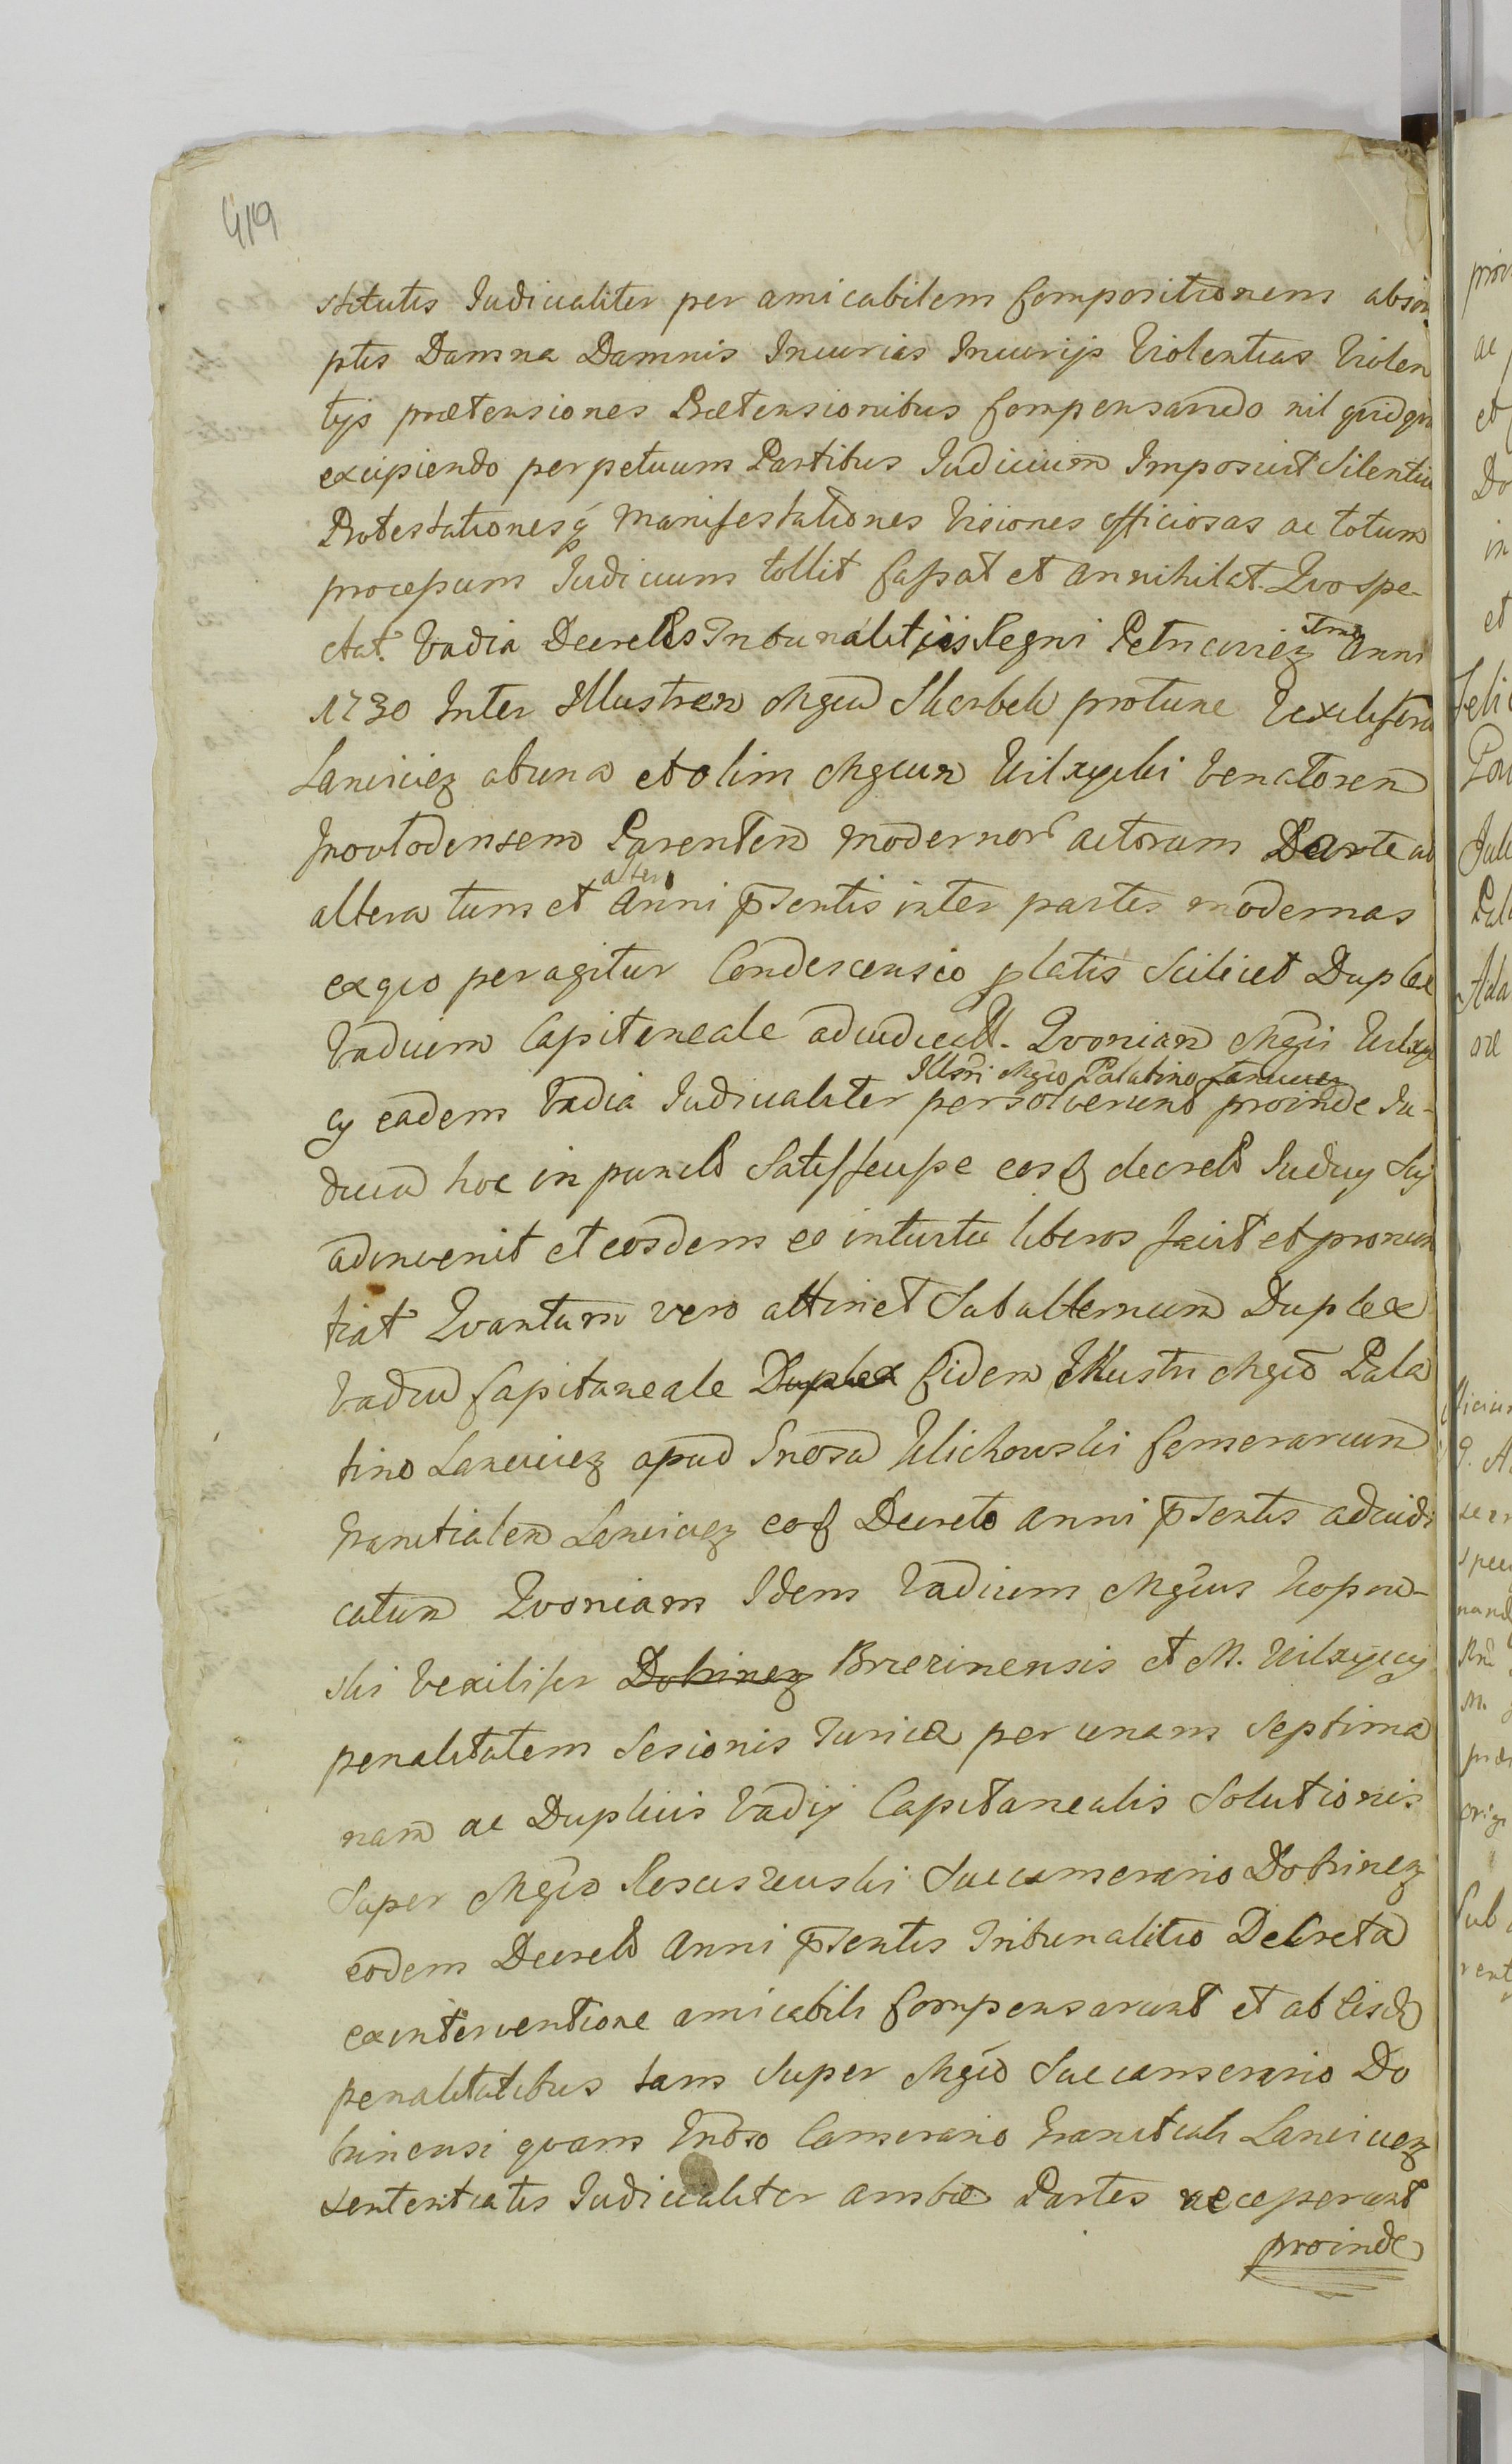 419
stitutis Judicialiter per amicabilem Compositionem absor
ptis Damna Damnis Incurias Incurijs Violentias Violen
tijs prætensiones Prætensionibus Compensando nil quidqu
excipiendo perpetuum Partibus Judicium Imposuit Silentiu
Protestationesq Manifestationes Visiones officiosas ac totum
processum Judicium tollit Cassat et Annihilat. Qvo spe-
ctat Vadia Decreto Tribunalitijs Regni Petricoviez Anni
1730 Inter Illustrem Mgcum Skarbek protunc Vexiliferu
Lanciciez ab una et olim Mgcum Wilxycki Venatorem
Inowlodensem Parentem Modernor Actorum Parte ab
altera tum et Anni pntis inter partes modernas
altero
ex quo peragitur Condescensio platis Scilicet Duplex
Vadium Capitaneale adiudicatt. Qvoniam Mgci Wilxy
Illri Mgco Palatino Lanciciez
cy eadem Vadia Judicialiter persolverunt proinde Ju-
diciu hoc in puncto Satisfecisse eosq decreto Judicij Sui
adinvenit et eosdem eo intuitu liberos facit et pronun
tiat Qvantum vero attinet Subalternum Duplex
Vadiu Capitaneale Duplex fidem Illustri Mgco Pala
tino Lanciciez apud Gnosu Ulichowski Camerarium
Granitialem Lanciciez eoq Decreto anni pntis adiudi
catum Qvoniam Idem Vadium Mgcus
ski Vexilifer Dobrinez Brzezinensis et M. Wilxyccy
penalitatem Sesionis Turica per unam Septima
nam ac Duplicis Vadij Capitanealis Solutionis
Super Mgco Rosciszewski Succamerario Dobrinez
eodem Decreto Anni pntis Tribunalitio Decreta
ex interventione amicabili Compensarunt et ab eisd
penalitatibus tam Super Mgco Succamerario Do
brinensi qvam Gnoso Camerario Granitiali Lanciciez
sententiatis Judicialiter ambæ Partes receperunt
proinde